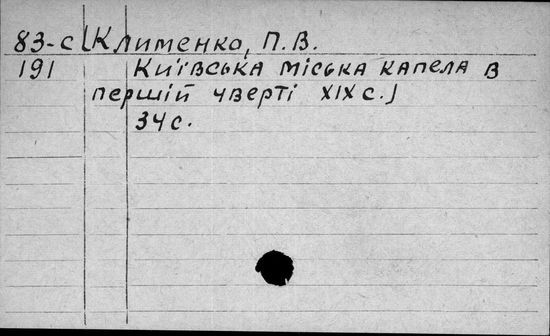 83-с [Клименко, П.В.
191 Київська міська капела в
першій чверті XIX с.]
34с.